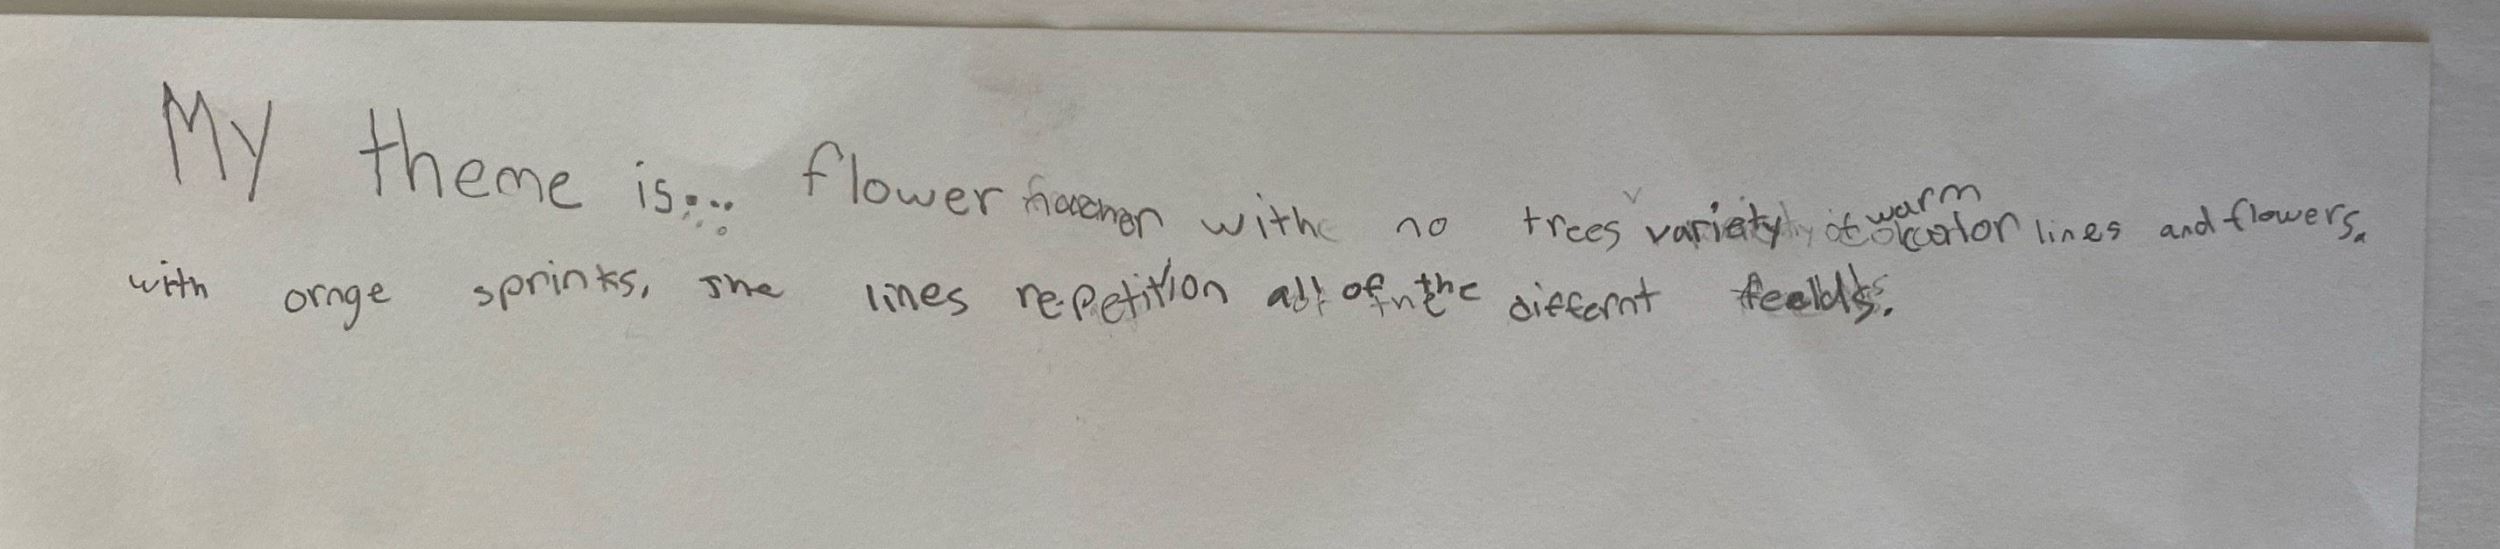 My theme is... flower with no trees variety of warm color lines and flowers.
with ornge sprinks, the lines repetition all of the differnt feelds.